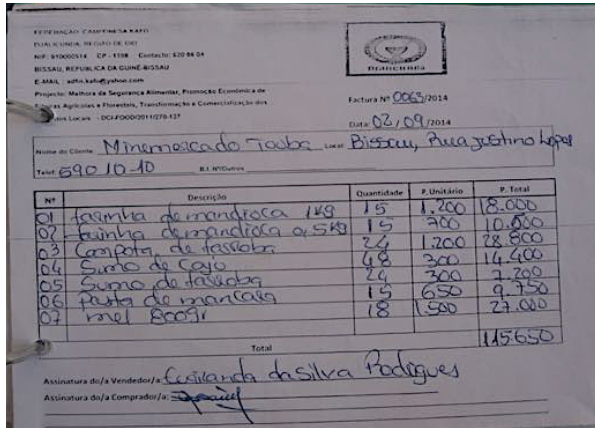 FEDERAÇÃO CAMPONESA KAFO
DJALICUNDA, REGIÃO DE OIO
NIF: 910000514 CP - 1198 Contacto: 620 84 04
BISSAU, REPÚBLICA DA GUINÉ-BISSAU
E-MAIL : adfm.kafo@yahoo.com
Projecto: Melhora da Segurança Alimentar, Promoção Económica de
Agrícolas e Florestais, Transformação e Comercialização dos
Locais - DCI-FOOD/2011/270-127
Factura Nº 0063/2014
Data: 02/09/2014
Nome do Cliente: Minemercado Touba Local: Bissau, Rua Justino Lopes
Telef: 590 10-10 B.I. Nº/Outros
Nº Descrição Quantidade P. Unitário P. Total
01 farinha de mandioca 1kg 15 1.200 18.000
02 farinha de mandioca 0,5kg 15 700 10.500
03 Compota de farroba 24 1.200 28.800
04 Sumo de Caju 48 300 14.400
05 Sumo de farroba 24 300 7.200
06 Pasta de mancara 15 650 9.750
07 mel 800gr 18 1.500 27.000
Total 115.650
Assinatura do/a Vendedor/a: da Silva Rodrigues
Assinatura do/a Comprador/a: